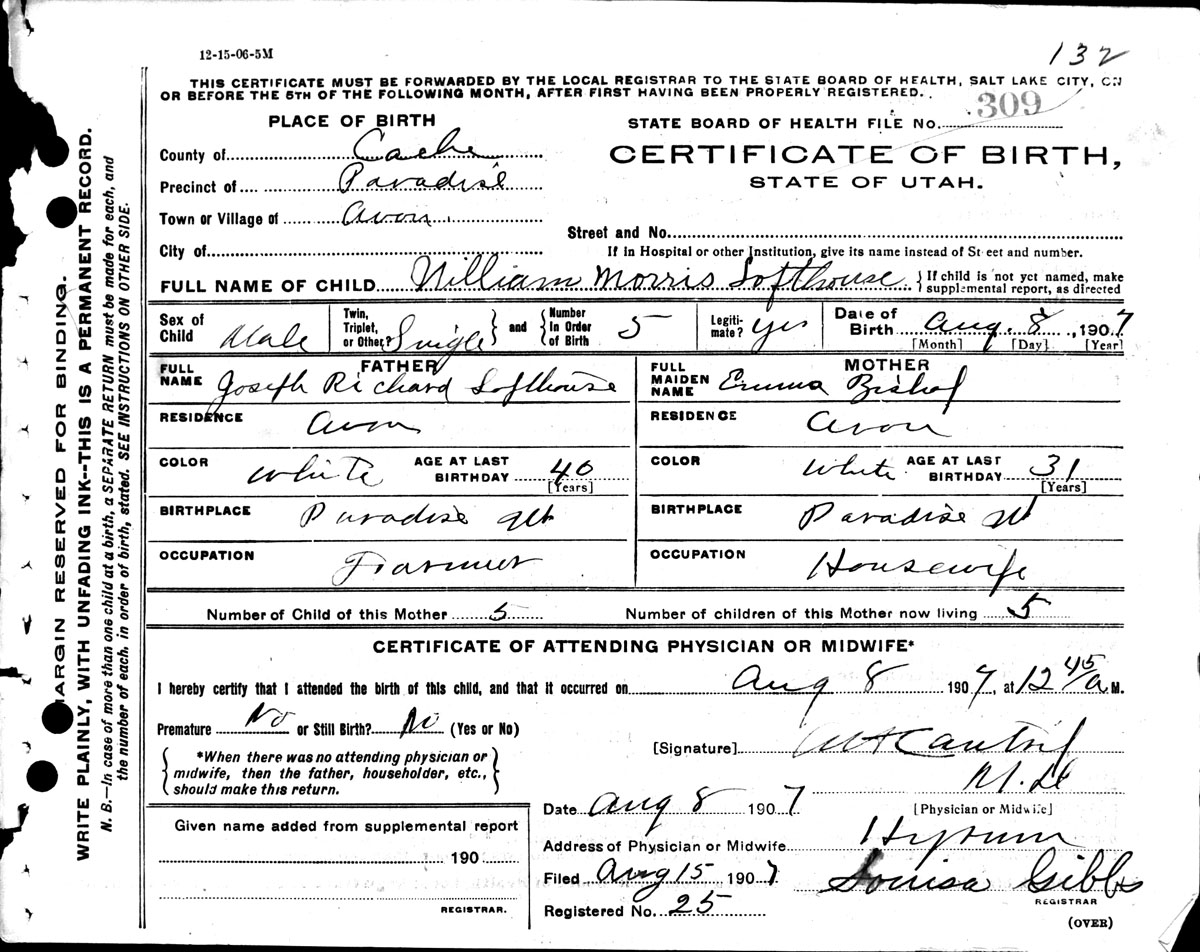 12-15-06-5M
132
THIS CERTIFICATE MUST BE FORWARDED BY THE LOCAL REGISTRAR TO THE STATE BOARD OF HEALTH, SALT LAKE CITY, ON
OR BEFORE THE 5TH OF THE FOLLOWING MONTH, AFTER FIRST HAVING BEEN PROPERLY REGISTERED.
PLACE OF BIRTH
STATE BOARD OF HEALTH FILE No. 309
County of Cache
CERTIFICATE OF BIRTH,
Precinct of Paradise
STATE OF UTAH.
Town or Village of Avon
Street and No.
City of
If in Hospital or other Institution, give its name instead of Street and number.
FULL NAME OF CHILD William Morris Lofthouse } If child is not yet named, make
supplemental report, as directed
Sex of Child Male
Twin, Triplet, or Other? Single } and { Number In Order of Birth 5
Legiti- mate? Yes
Date of Birth Aug. 8, 1907
[Month] [Day] [Year]
FATHER
FULL NAME Joseph Richard Lofthouse
MOTHER
FULL MAIDEN NAME Emma Bishop
RESIDENCE Avon
RESIDENCE Avon
COLOR White AGE AT LAST BIRTHDAY 40 [Years]
COLOR White AGE AT LAST BIRTHDAY 31 [Years]
BIRTHPLACE Paradise Ut
BIRTHPLACE Paradise Ut
OCCUPATION Farmer
OCCUPATION Housewife
Number of Child of this Mother 5 Number of children of this Mother now living 5
CERTIFICATE OF ATTENDING PHYSICIAN OR MIDWIFE*
I hereby certify that I attended the birth of this child, and that it occurred on Aug 8 1907, at 12 45/a M.
Premature No or Still Birth? No (Yes or No)
*When there was no attending physician or
midwife, then the father, householder, etc.,
should make this return.
[Signature]
M.D.
[Physician or Midwife]
Date Aug 8 1907
Given name added from supplemental report
190
REGISTRAR.
Address of Physician or Midwife Hyrum
Filed Aug 15 1907 Louisa Gibbs
REGISTRAR
Registered No. 25
(OVER)
MARGIN RESERVED FOR BINDING.
WRITE PLAINLY, WITH UNFADING INK--THIS IS A PERMANENT RECORD.
N. B.—In case of more than one child at a birth, a SEPARATE RETURN must be made for each, and
the number of each, in order of birth, stated. SEE INSTRUCTIONS ON OTHER SIDE.